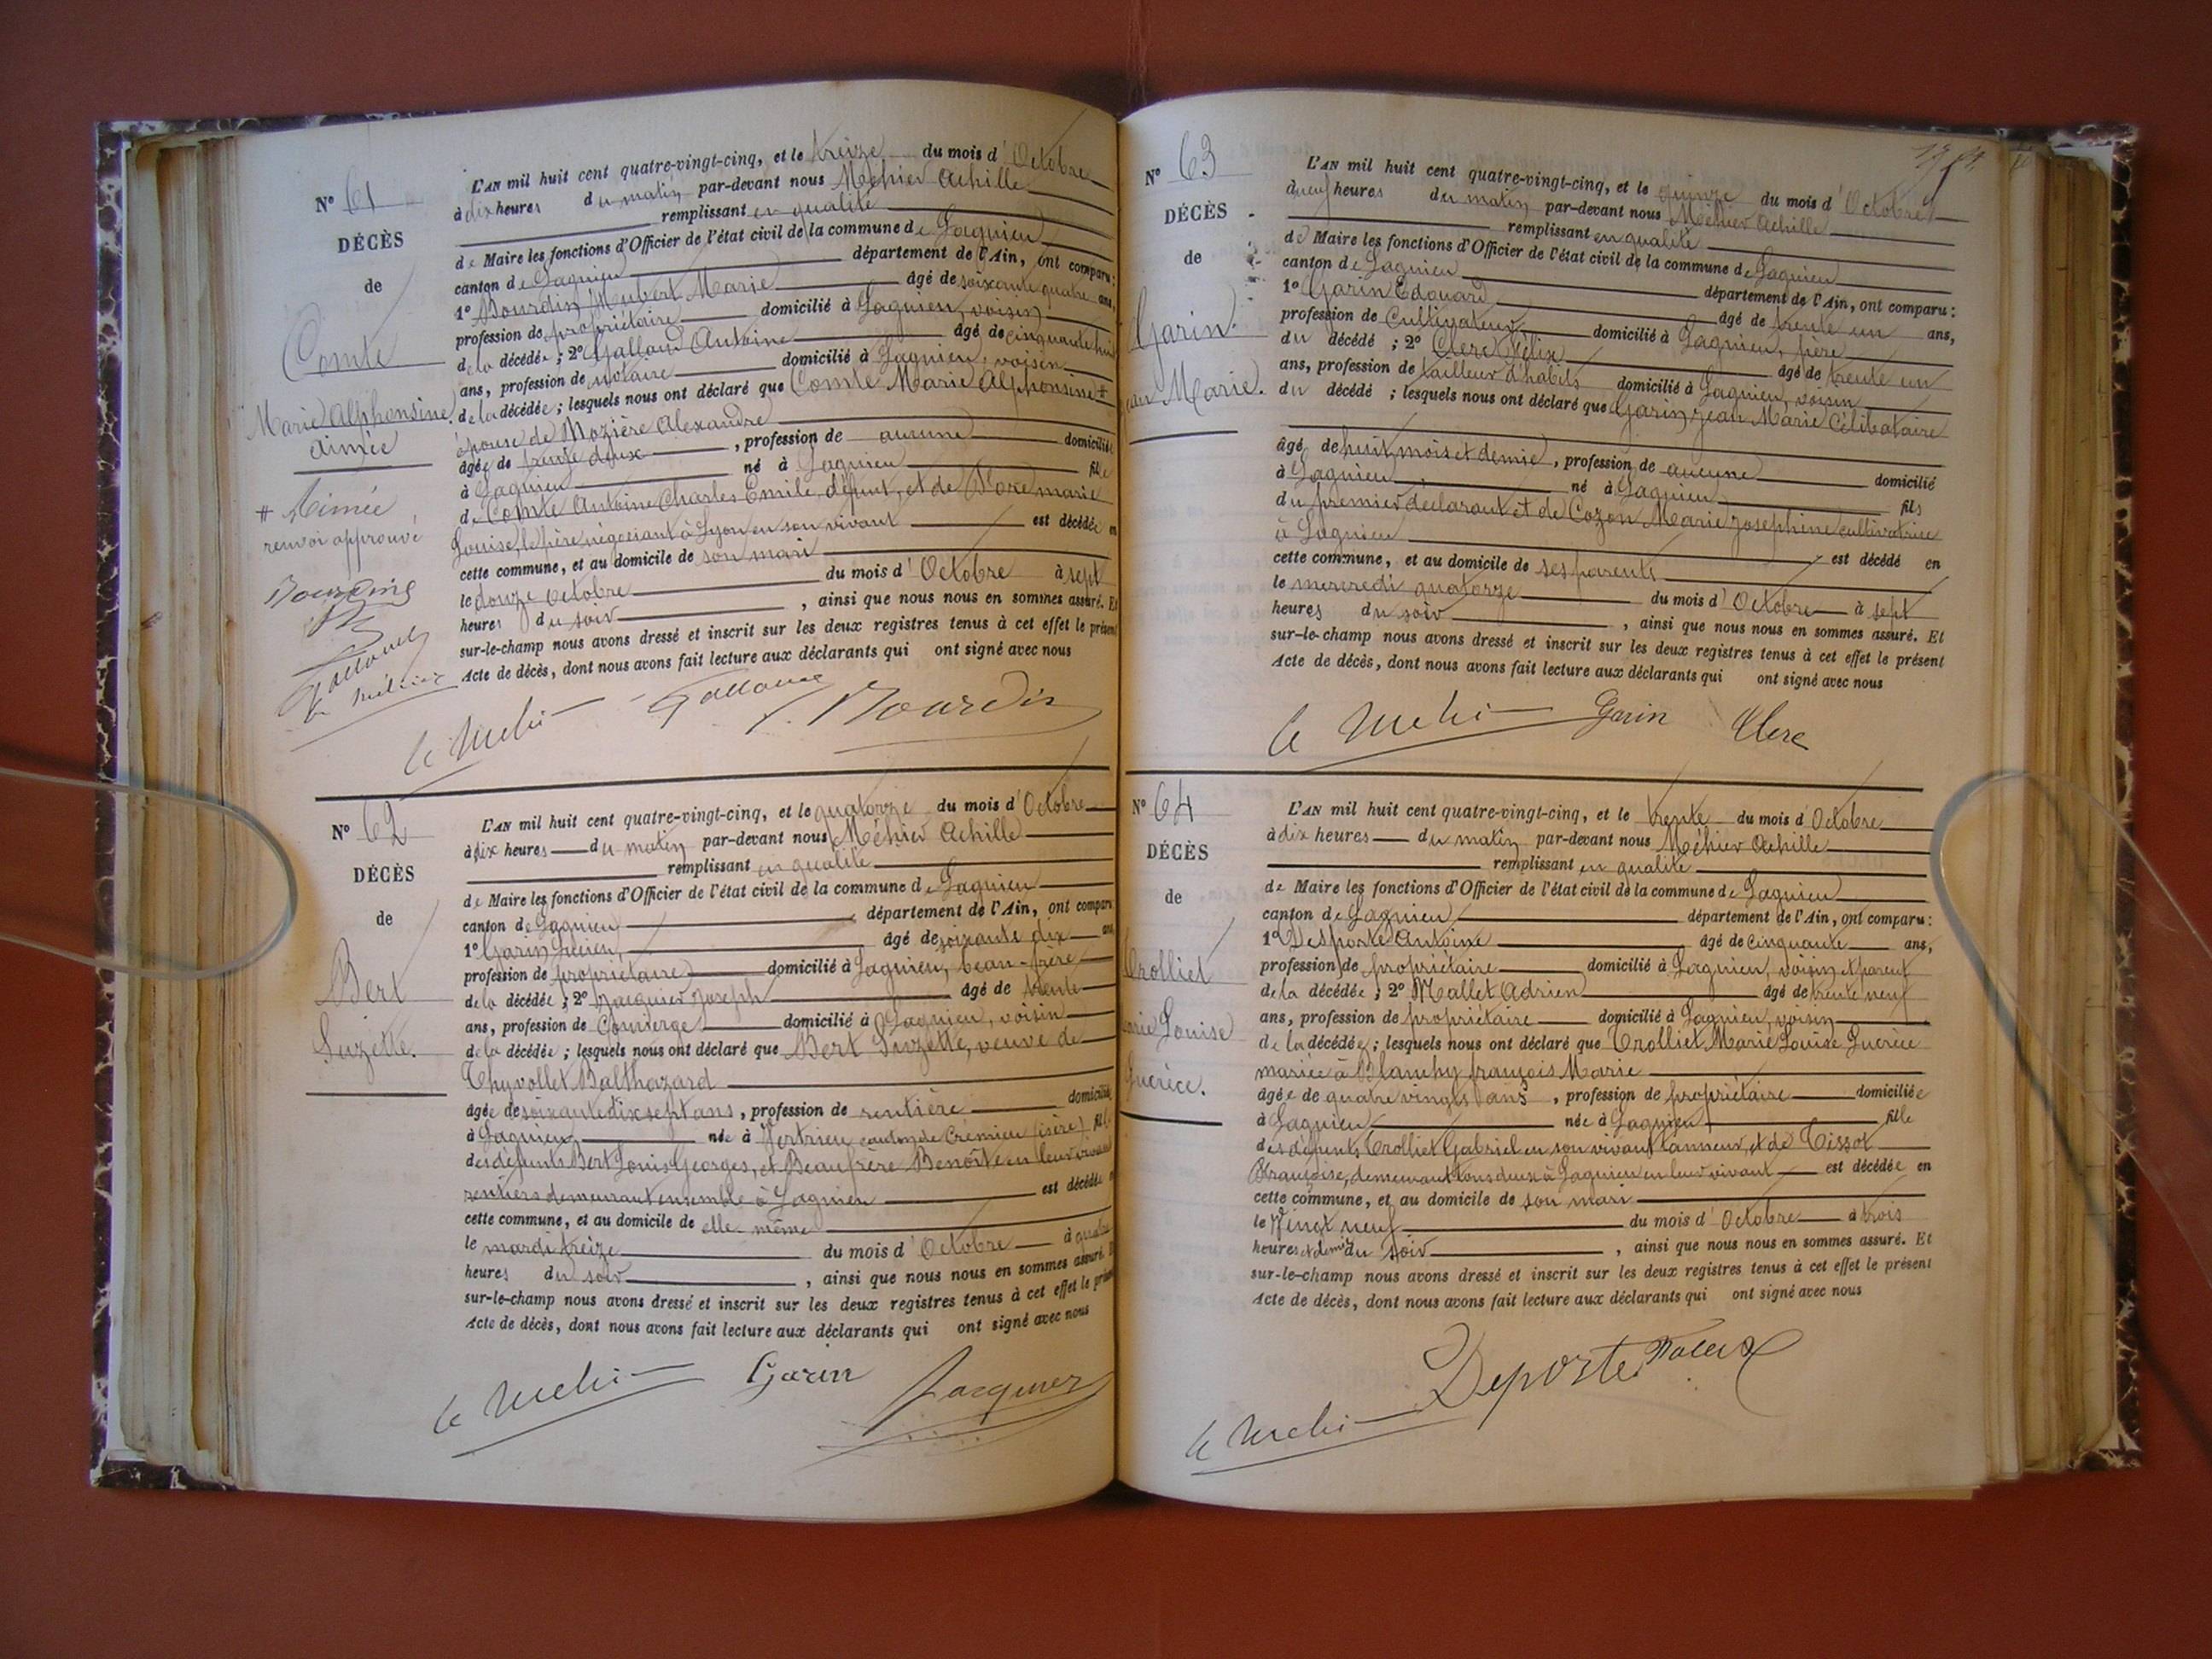 N° 61
DÉCÈS
de
Comte
Marie Alphonsine
Aimée
# Aimée
renvoi approuvé
Bourdin
L'AN mil huit cent quatre-vingt-cinq, et le treize du mois d'Octobre
à dix heures du matin par-devant nous Méhier Achille
remplissant en qualité
de Maire les fonctions d'Officier de l'état civil de la commune de Lagnieu
canton de Lagnieu département de l'Ain, ont comparu:
1° Bourdin Hubert Marie âgé de soixante quatre ans,
profession de propriétaire domicilié à Lagnieu, voisin
de la décédée; 2° Galland Antoine âgé de cinquante huit
ans, profession de notaire domicilié à Lagnieu, voisin
de la décédée; lesquels nous ont déclaré que Comte Marie Alphonsine #
épouse de Mozière Alexandre
âgée de trente deux, profession de aucune domiciliée
à Lagnieu né à Lagnieu fille
de Comte Antoine Charles Emile, défunt, et de marie
Louise, le père négociant à Lyon en son vivant est décédée en
cette commune, et au domicile de son mari
le douze octobre du mois d'Octobre à sept
heures du soir, ainsi que nous nous en sommes assuré. Et
sur-le-champ nous avons dressé et inscrit sur les deux registres tenus à cet effet le présent
Acte de décès, dont nous avons fait lecture aux déclarants qui ont signé avec nous
Bourdin
N° 62
DÉCÈS
de
Bert
Suzette.
L'AN mil huit cent quatre-vingt-cinq, et le quatorze du mois d'Octobre
à dix heures du matin par-devant nous Méhier Achille
remplissant en qualité
de Maire les fonctions d'Officier de l'état civil de la commune de Lagnieu
canton de Lagnieu département de l'Ain, ont comparu
1° Garin Lucien, âgé de soixante dix ans
profession de propriétaire domicilié à Lagnieu, beau-frère
de la décédée; 2° Jacquier Joseph âgé de trente
ans, profession de Concierge domicilié à Lagnieu, voisin
de la décédée; lesquels nous ont déclaré que Bert Suzette, veuve de
Thyvollet Balthazard
âgée de soixante dix sept ans, profession de rentière domiciliée
à Lagnieu née à Vertrieu canton de Crémieu (isère) fille
des défunts Bert Louis Georges, et Beaufrère Benoîte en leur vivant
rentiers demeurant ensemble à Lagnieu est décédée
cette commune, et au domicile de elle-même
le mardi treize du mois d'Octobre à quatre
heures du soir, ainsi que nous nous en sommes assuré. Et
sur-le-champ nous avons dressé et inscrit sur les deux registres tenus à cet effet le présent
Acte de décès, dont nous avons fait lecture aux déclarants qui ont signé avec nous
Garin Jacquier
N° 63
DÉCÈS
de
Garin
Jean Marie.
L'AN mil huit cent quatre-vingt-cinq, et le quinze du mois d'Octobre
à neuf heures du matin par-devant nous Méhier Achille
remplissant en qualité
de Maire les fonctions d'Officier de l'état civil de la commune de Lagnieu
canton de Lagnieu département de l'Ain, ont comparu:
1° Garin Edouard âgé de trente un ans,
profession de Cultivateur domicilié à Lagnieu, père
du décédé; 2° Clerc Félix âgé de trente un
ans, profession de tailleur d'habits domicilié à Lagnieu, voisin
du décédé; lesquels nous ont déclaré que Garin Jean Marie Célibataire
âgé de huit mois et demie, profession de aucune domicilié
à Lagnieu né à Lagnieu fils
du premier déclarant et de Cozon Marie Josephine cultivatrice
à Lagnieu est décédé en
cette commune, et au domicile de ses parents
le mercredi quatorze du mois d'Octobre à sept
heures du soir, ainsi que nous nous en sommes assuré. Et
sur-le-champ nous avons dressé et inscrit sur les deux registres tenus à cet effet le présent
Acte de décès, dont nous avons fait lecture aux déclarants qui ont signé avec nous
Garin Clerc
N° 64
DÉCÈS
de
Trolliet
Marie Louise
Lucrèce.
L'AN mil huit cent quatre-vingt-cinq, et le trente du mois d'Octobre
à dix heures du matin par-devant nous Méhier Achille
remplissant en qualité
de Maire les fonctions d'Officier de l'état civil de la commune de Lagnieu
canton de Lagnieu département de l'Ain, ont comparu:
1° Desporte Antoine âgé de cinquante ans,
profession de propriétaire domicilié à Lagnieu, voisin et parent
de la décédée; 2° Mallet Adrien âgé de trente neuf
ans, profession de propriétaire domicilié à Lagnieu, voisin
de la décédée; lesquels nous ont déclaré que Trolliet Marie Louise Lucrèce
mariée à Blanchy françois Marie
âgée de quatre vingts ans, profession de propriétaire domiciliée
à Lagnieu née à Lagnieu fille
des défunts Trolliet Gabriel en son vivant tanneur, et de Tissot
Françoise, demeurant tous deux à Lagnieu en leur vivant est décédée en
cette commune, et au domicile de son mari
le Vingt neuf du mois d'Octobre à trois
heures et demie du soir, ainsi que nous nous en sommes assuré. Et
sur-le-champ nous avons dressé et inscrit sur les deux registres tenus à cet effet le présent
Acte de décès, dont nous avons fait lecture aux déclarants qui ont signé avec nous
Deporte